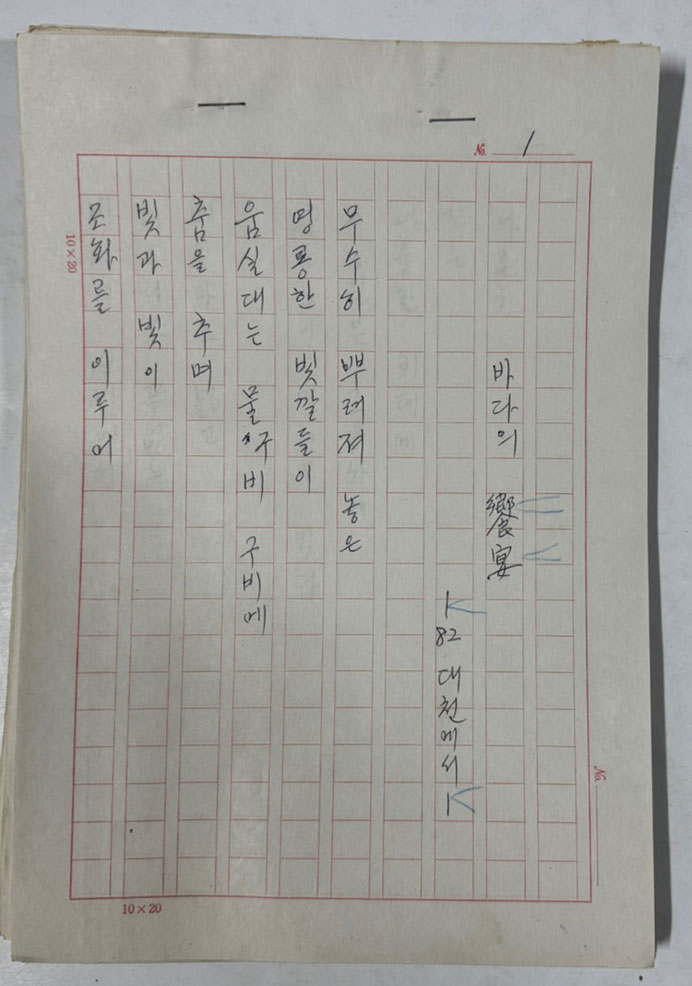 No. 1
바다의 饗宴
- 82 대천에서 -
무수히 뿌려져 놓은
영롱한 빛깔들이
움실대는 물구비 구비에
춤을 추며
빛과 빛이
조화를 이루어
10×20
10×20
No.